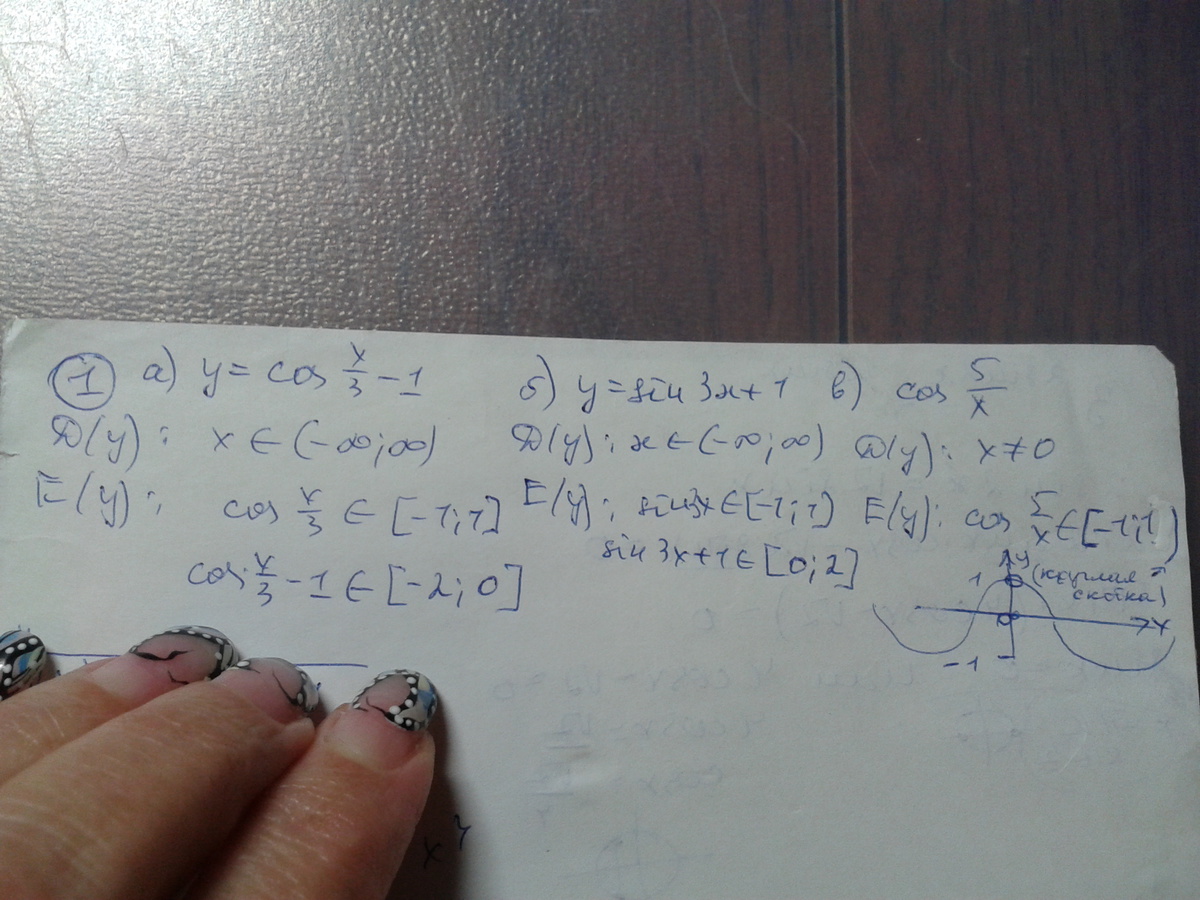 1 а) y = cos x/3 − 1 б) y = sin 3x + 1 в) cos 5/x
D(y): x ∈ (−∞; ∞) D(y): x ∈ (−∞; ∞) D(y): x ≠ 0
E(y): cos x/3 ∈ [−1; 1] E(y): sin 3x ∈ [−1; 1] E(y): cos 5/x ∈ [−1; 1)
cos x/3 − 1 ∈ [−2; 0] sin 3x + 1 ∈ [0; 2]
y
1 (круглая
скобка)
0 x
−1
x